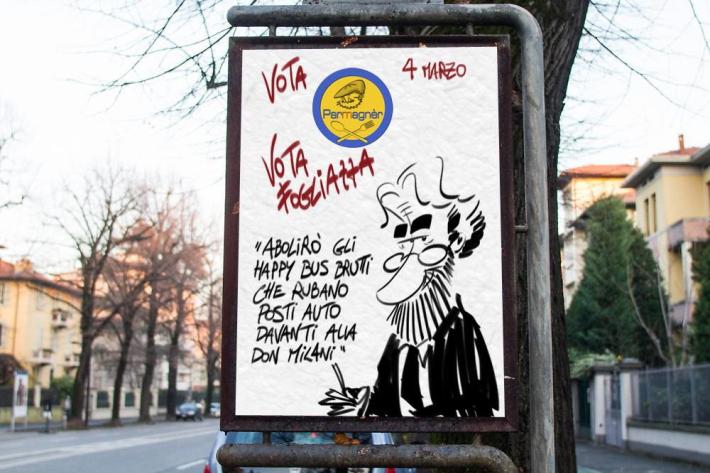 VOTA
4 MARZO
Parmagnèr
VOTA
FOGLIAZZA
"ABOLIRÒ GLI
HAPPY BUS BRUTTI
CHE RUBANO
POSTI AUTO
DAVANTI ALLA
DON MILANI"